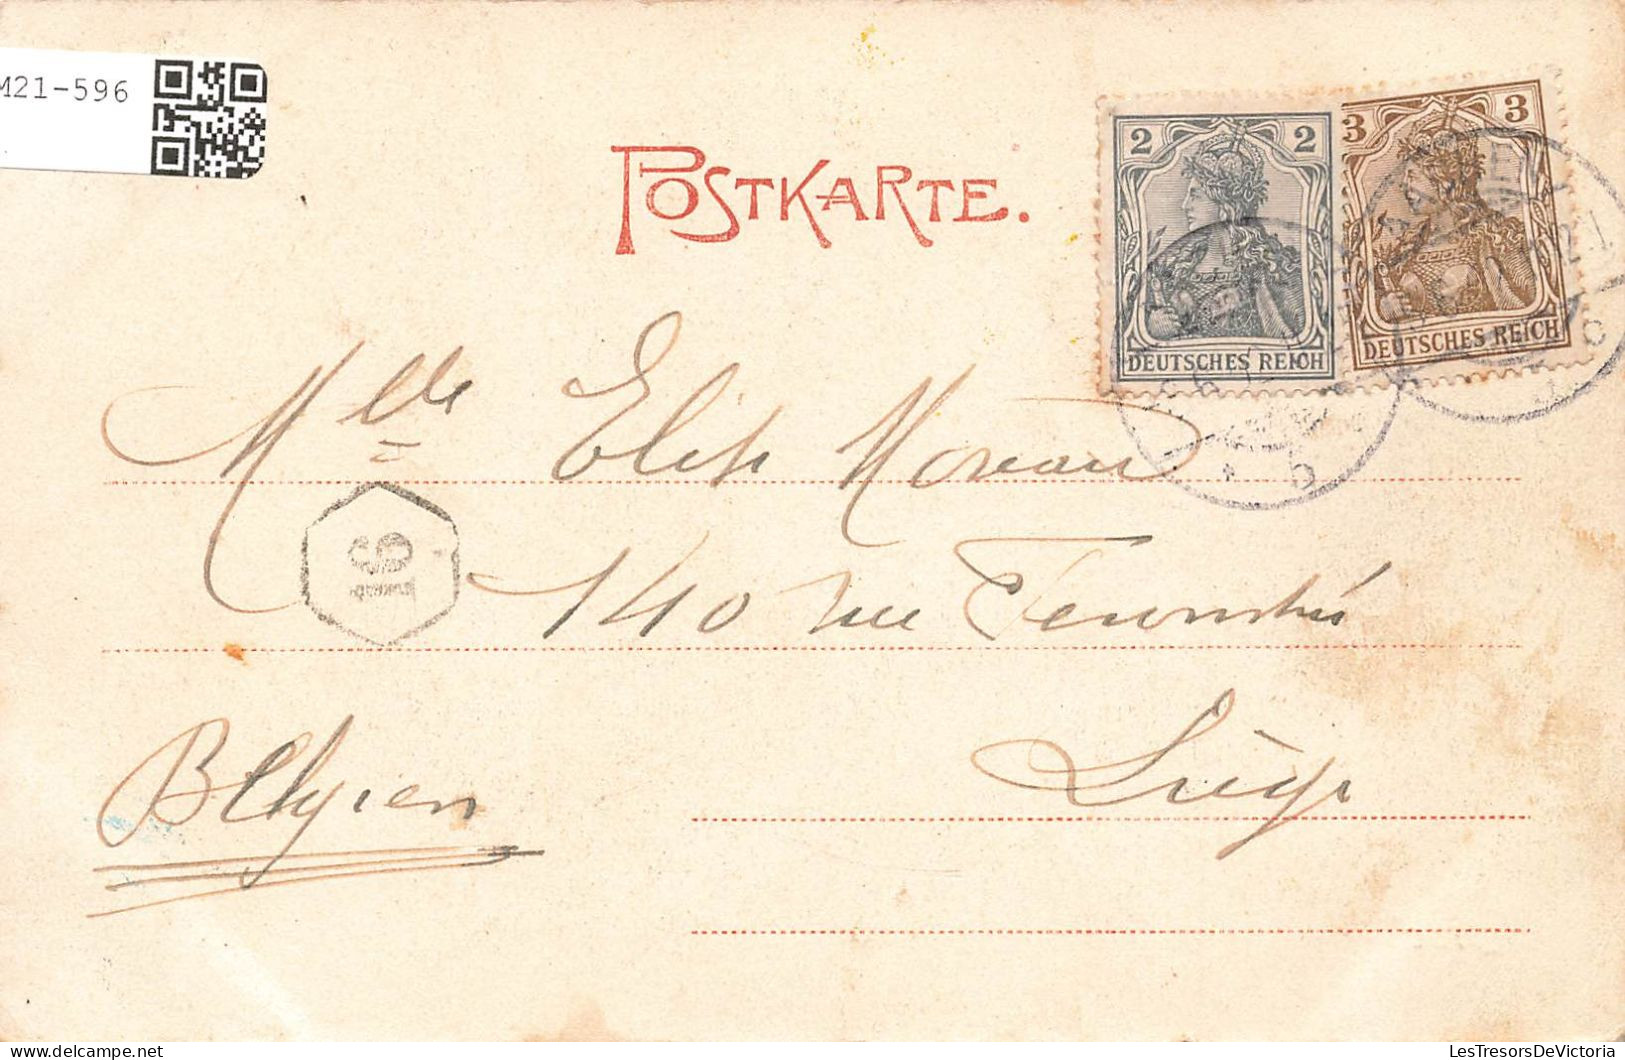 M21-596
POSTKARTE.
2 2
DEUTSCHES REICH
3 3
DEUTSCHES REICH
Mlle Elise Moreau
16
140 rue
Liège
Belgien
LesTresorsDeVictoria